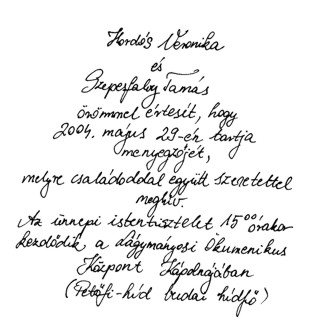 Hordós Veronika
és
Szepesfalvy Tamás
örömmel értesít, hogy
2004. május 29-én tartja
menyegzőjét,
melyre családoddal együtt szeretettel
meghív.
Az ünnepi istentisztelet 15⁰⁰ órakor
kezdődik a Lágymányosi Ökumenikus
Központ Kápolnájában
(Petőfi-híd budai hídfő)